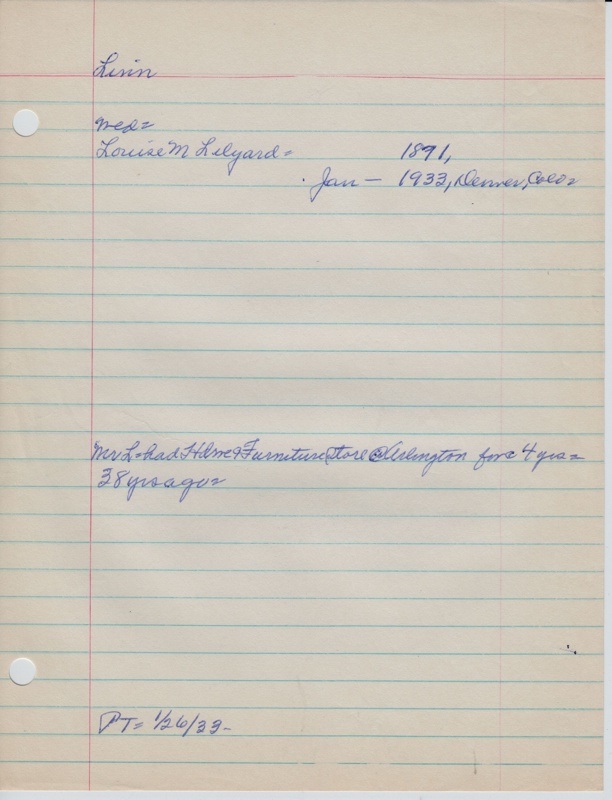 Linn
Wed=
Louise M Lilyard= 1891,
Jan — 1933, Denver, Colo=
Mr L= had Hdwe & Furniture Store @ Arlington for 4 yrs=
38 yrs ago=
PT= 1/26/33-